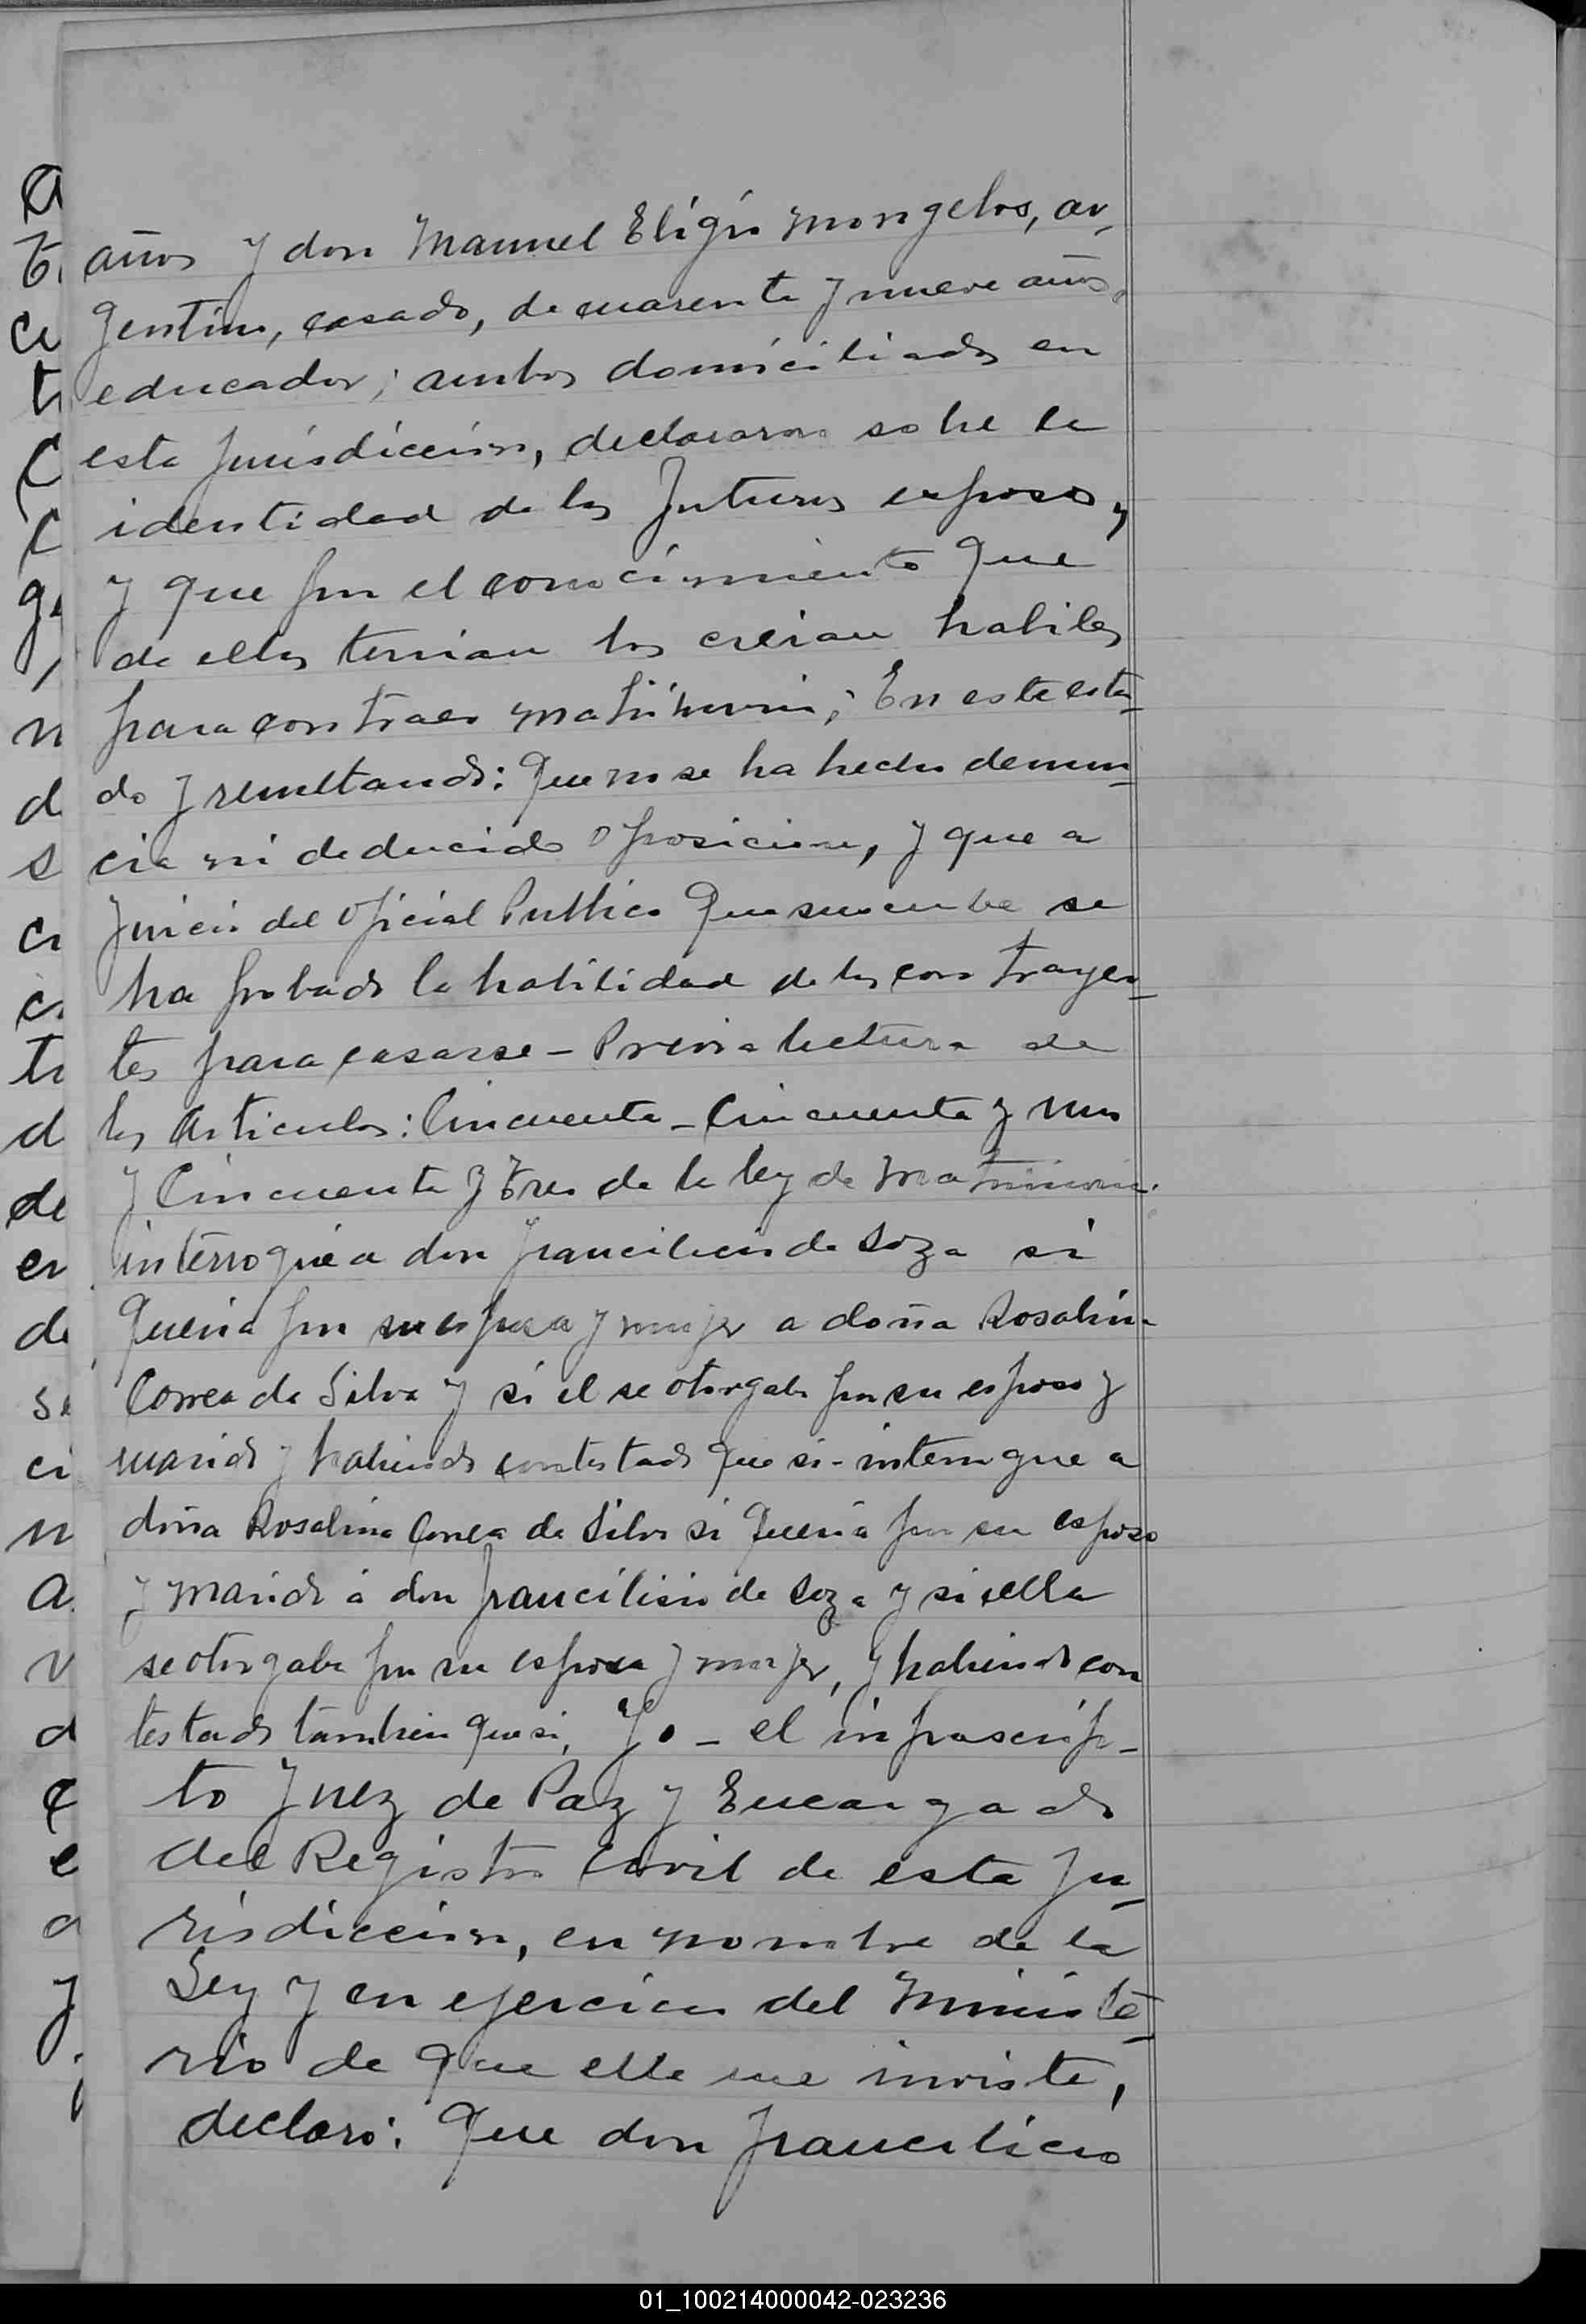 años y don Manuel Eligio Mongelos, ar-
gentino, casado, de cuarenta y nueve años,
educador; ambos domiciliados en
esta jurisdiccion, declararon sobre la
identidad de los futuros esposos,
y que por el conocimiento que
de ellos tenian los creian habiles
para contraer matrimonio; En este esta-
do y resultando: Que no se ha hecho denun-
cia ni deducido oposicion, y que a
juicio del Oficial Publico que suscribe se
ha probado la habilidad de los contrayen-
tes para casarse - Previa lectura de
los articulos: Cincuenta - Cincuenta y uno
y Cincuenta y tres de la ley de Matrimonio.
interrogué a don Francilicio de Soza si
queria por su esposa y mujer a doña Rosalina
Correa da Silva y si el se otorgaba por su esposo y
marido y habiendo contestado que si - interrogue a
doña Rosalina Correa da Silva si queria por su esposo
y marido á don Francilicio de Soza y si ella
se otorgaba por su esposa y mujer, y habiendo con
testado tambien que si, Yo - el infrascrip-
to Juez de Paz y Encargado
del Registro Civil de esta Ju-
risdiccion, en nombre de la
Ley y en ejercicio del Ministe-
rio de que ella me inviste,
declaro: Que don Francilicio
01_100214000042-023236